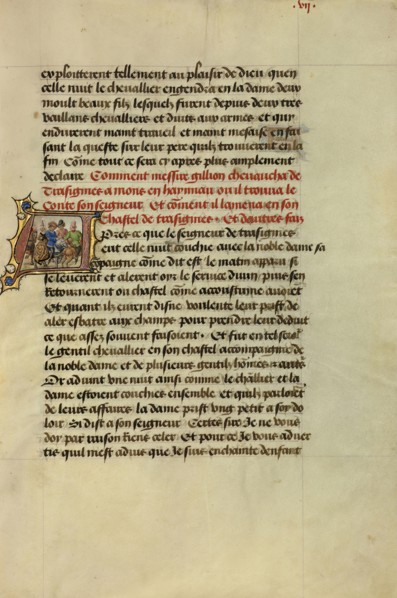 .vij.
exploitterent tellement au plaisir de dieu quen
celle nuit le chevallier engendra en la dame deux
moult beaux filz lesquelz furent depuis deux tres
vaillans chevalliers et duitz aux armes et qui
endurerent maint traveil et maint mesaise en fai
sant la queste sur leur pere quilz trouverent en la
fin Come tout ce sera cy apres plus amplement
declaire Comment messire gillion chevaucha de
Trasignies a mons en haynnau ou il trouva le
Conte son seigneur Et coment il lamena en son
Chastel de trasignies Et dautres faiz
Apres ce que le seigneur de trasignies
eut celle nuit couchie avec la noble dame sa
compaigne come dit est le matin apparu si
se leverent et alerent oyr le service divin puis sen
Retournerent ou chastel come acoustume avoient
Et quant ilz eurent disne voulente leur prist de
aler esbatre aux champs pour prendre leur deduit
ce que asses souvent faisoient Et fut en tel
le gentil chevallier en son chastel accompaigne de
la noble dame et de plusieurs gentilz homes
Or advint une nuit ainsi comme le chlier et la
dame estoient couchies ensemble et quilz parloient
de leurs affaires la dame prist ung petit a soy do
loir Si dist a son seigneur Certes sire Je ne vous
doy par raison Riens celer Et pour ce Je vous adver
tis quil mest advis que Je suis enchainte denfant